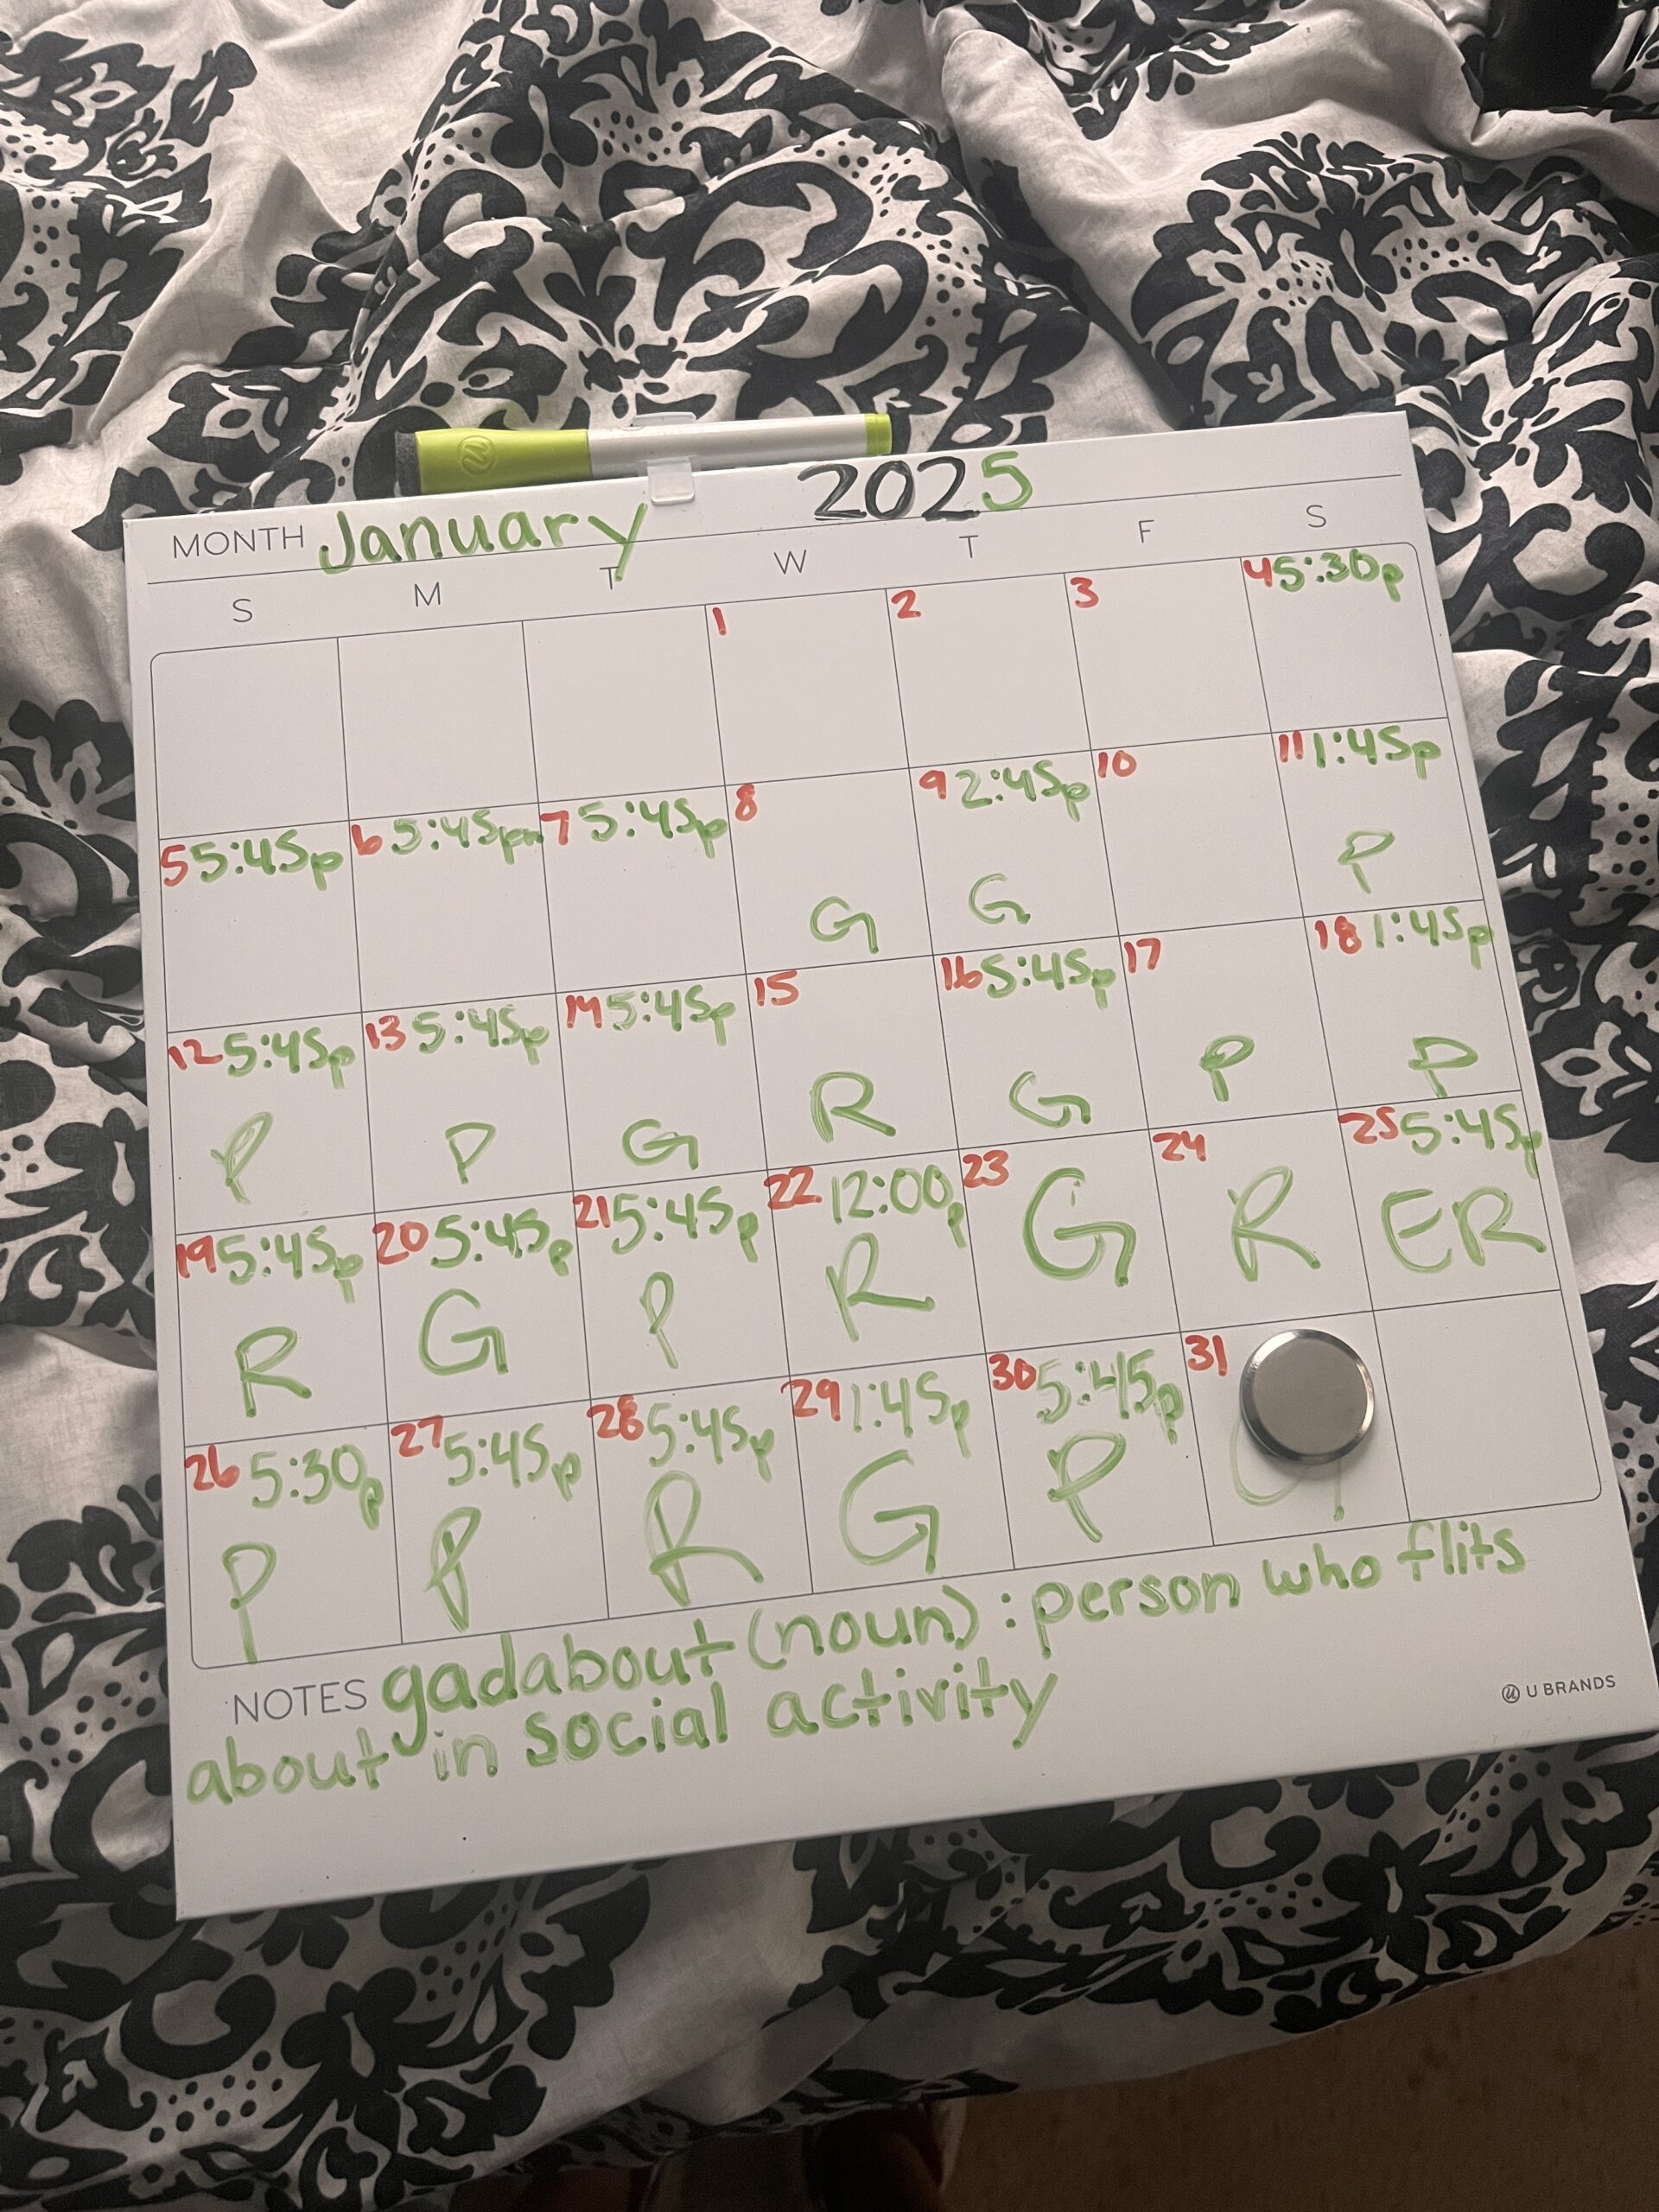 2025
MONTH January
S M T W T F S
1 2 3 4 5:30p
5 5:45p 6 5:45pm 7 5:45p 8 9 2:45p 10 11 1:45p
G G P
12 5:45p 13 5:45p 14 5:45p 15 16 5:45p 17 18 1:45p
P P G R G P P
19 5:45p 20 5:45p 21 5:45p 22 12:00p 23 24 25 5:45p
R G P R G R ER
26 5:30p 27 5:45p 28 5:45p 29 1:45p 30 5:45p 31
P P R G P
NOTES gadabout (noun): person who flits
about in social activity
U BRANDS